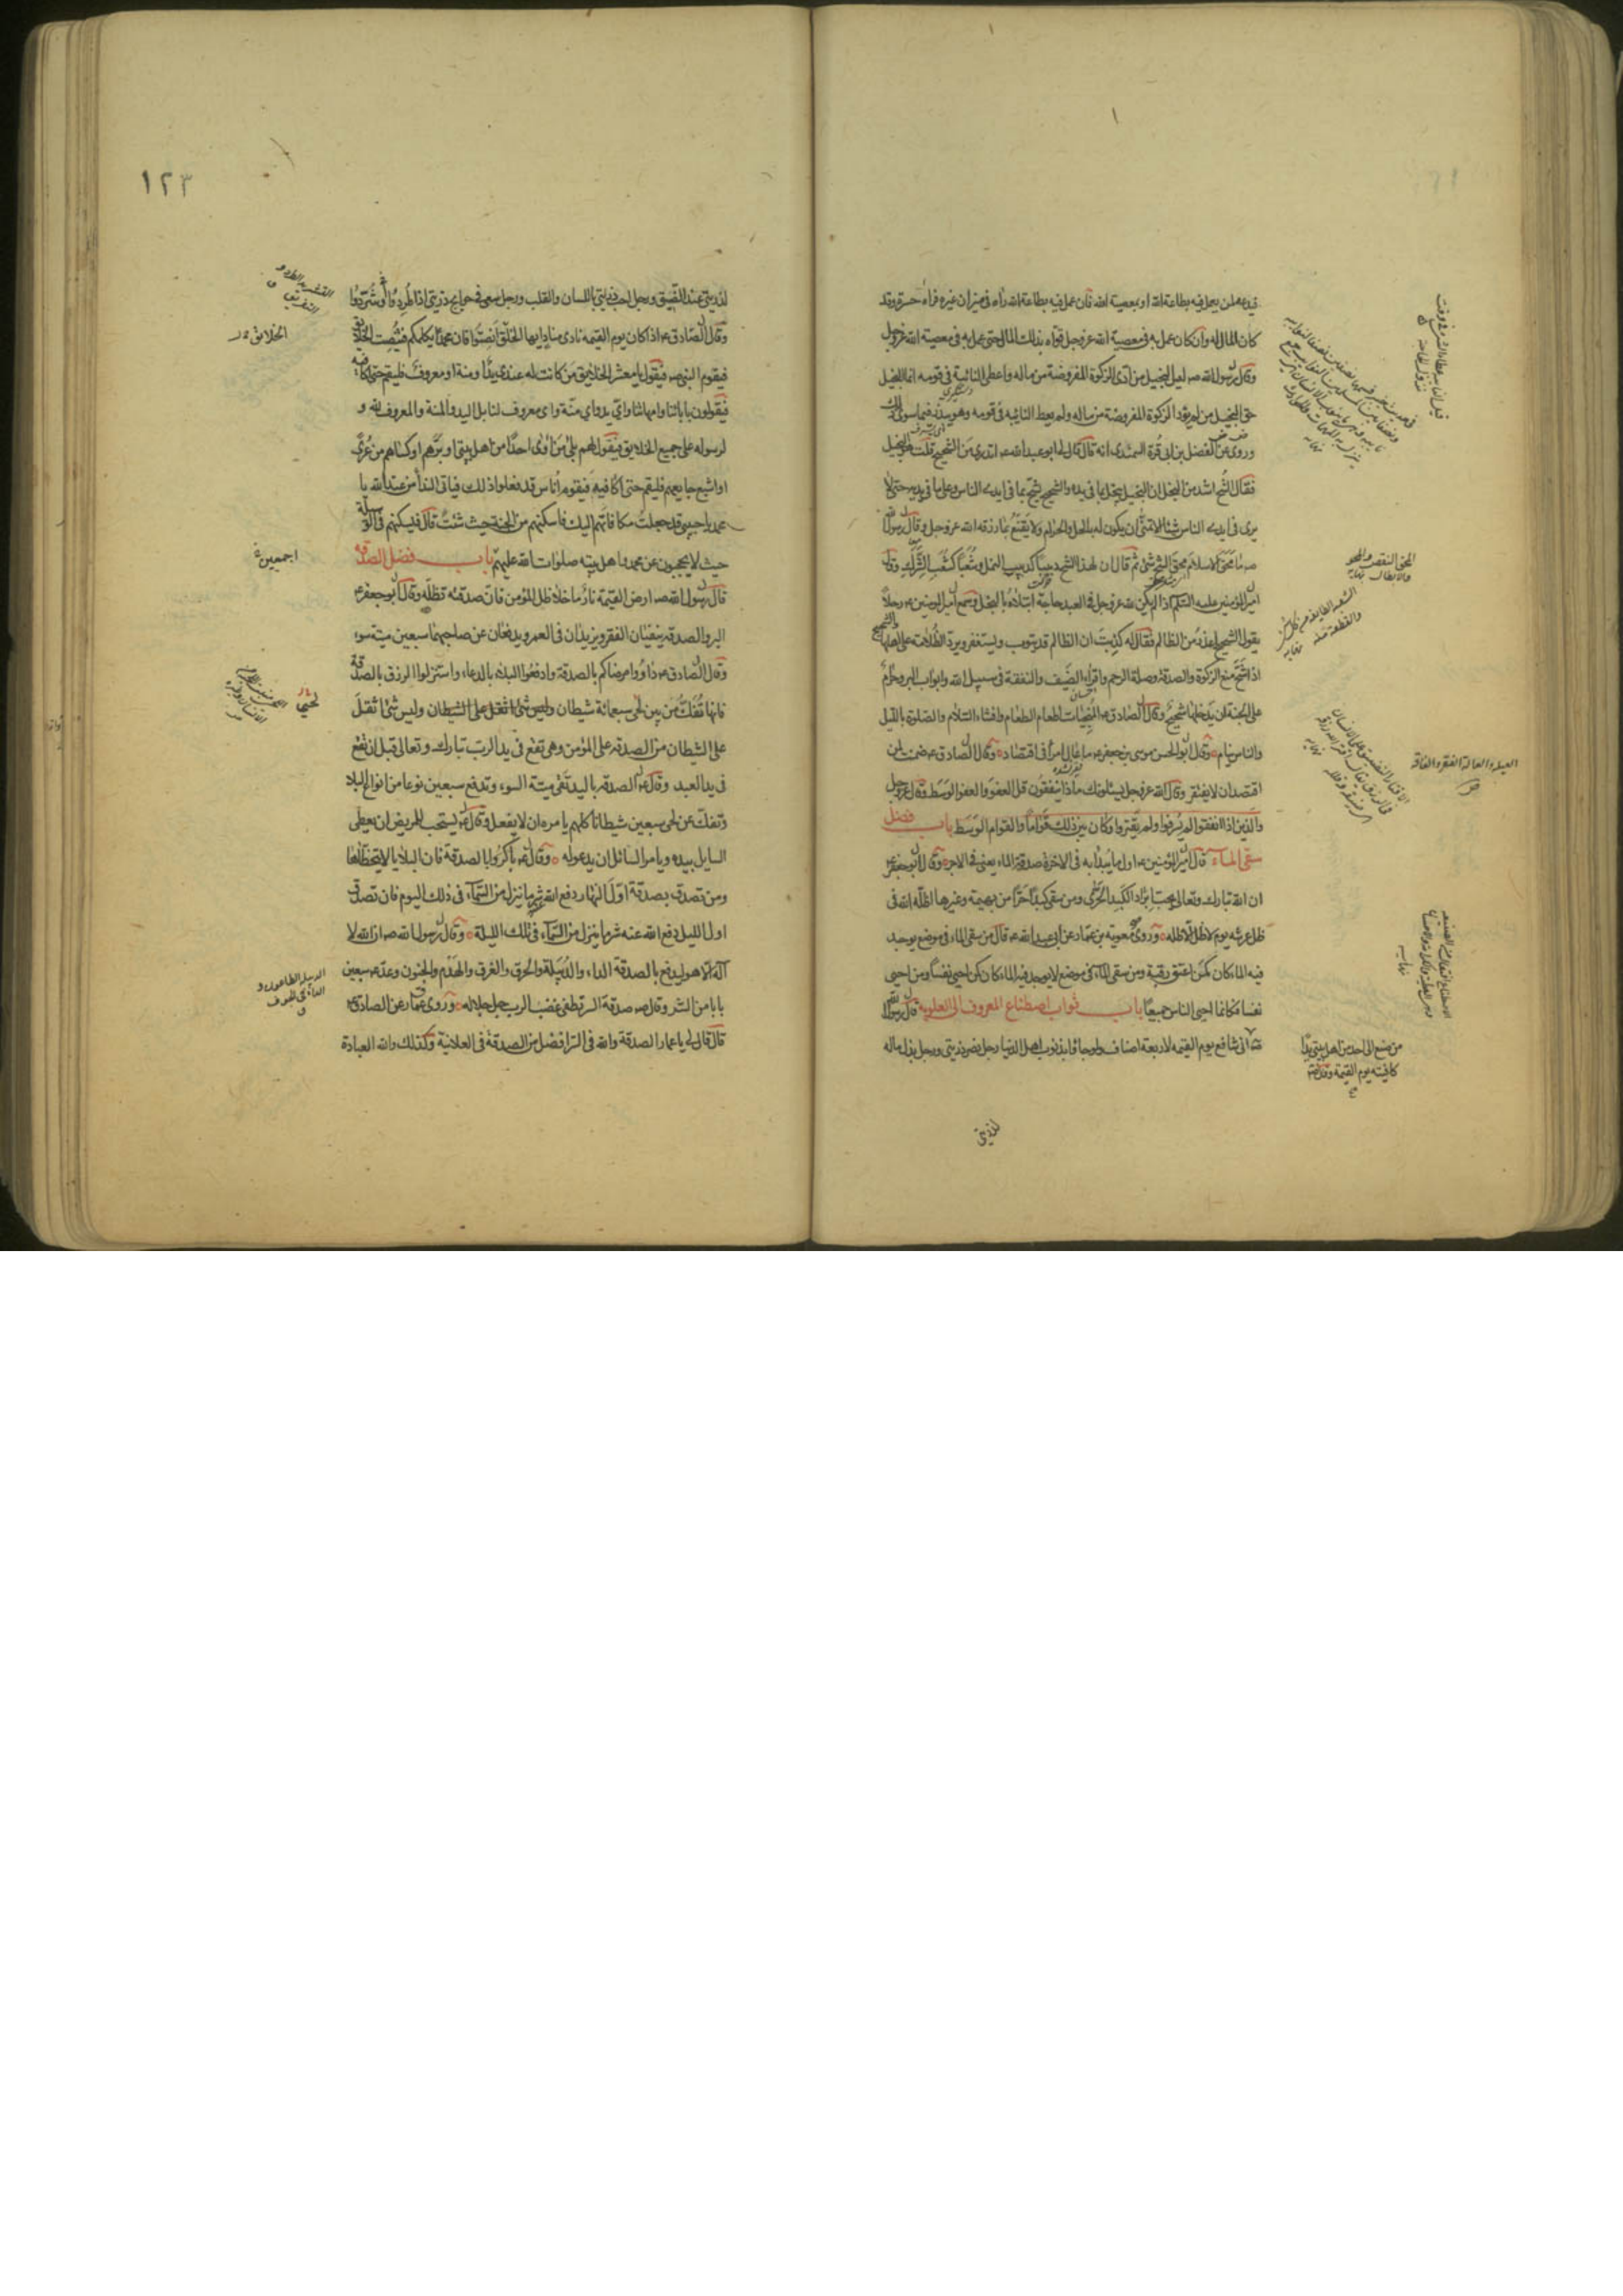 فيدعه لمن يعمل فيه بطاعة الله او بمعصية الله فان عمل فيه بطاعة الله رآه في ميزان غيره فرآه حسرة وقد
كان المال له وان كان عمل به في معصية الله عز وجل قواه بذلك المال حتى عمل به في معصية الله عز وجل
وقال رسول الله صم ليس البخيل من ادى الزكوة المفروضة من ماله واعطى النائبة في قومه انما البخيل
حق البخيل من لم يؤد الزكوة المفروضة من ماله ولم يعط النائبه في قومه وهو يبذر فيما سوى ذلك
وروى عن الفضل بن ابي قرة السمندى انه قال قال لى ابو عبد الله ع اتدرى من الشحيح قلت هو البخيل
فقال الشح اشد من البخل ان البخيل يبخل بما في يده والشحيح يشح بما في ايدى الناس وعلى ما في يديه حتى لا
يرى في ايدى الناس شيئا الا تمنى ان يكون له بالحل والحرام ولا يقنع بما رزقه الله عز وجل وقال رسول الله
صم ما محق الاسلام محق الشح شئ ثم قال ان لهذا الشح دبيبا كدبيب النمل وشعبا كشعب الشرك وقال
امير المؤمنين عليه السلم اذا لم يكن لله عز وجل في العبد حاجة ابتلاه بالبخل وسمع امير المومنين ع رجلا
يقول الشحيح اعذر من الظالم فقال له كذبت ان الظالم قد يتوب ويستغفر ويرد الظلامة على اهلها والشحيح
اذا شح منع الزكوة والصدقة وصلة الرحم واقراء الضيف والنفقة في سبيل الله وابواب البر وحرام
على الجنة ان يدخلها شحيح وقال الصادق ع المنجيات اطعام الطعام وافشاء السلام والصلوة بالليل
والناس نيام وقال ابو الحسن موسى بن جعفر ع ما عال امرأ في اقتصاد وقال الصادق ع ضمنت لمن
اقتصد ان لا يفتقر وقال الله عز وجل يسئلونك ماذا ينفقون قل العفو والعفو الوسط وقال عز وجل
والذين اذا انفقوا لم يسرفوا ولم يقتروا وكان بين ذلك قواما والقوام الوسط باب فضل
سقى الماء قال امير المؤمنين ع اول ما يبدأ به في الاخرة صدقة الماء يعنى في الاجر وقال ابو جعفر ع
ان الله تبارك وتعالى يحب ابراد الكبد الحرى ومن سقى كبدا حرا من بهيمة وغيرها اظله الله في
ظل عرشه يوم لا ظل الا ظله وروى معوية بن عمار عن ابى عبد الله ع قال من سقى الماء في موضع يوجد
فيه الماء كان كمن اعتق رقبة ومن سقى الماء في موضع لا يوجد فيه الماء كان كمن احيى نفسا ومن احيى
نفسا فكانما احيى الناس جميعا باب ثواب اصطناع المعروف الى العلوية قال رسول الله
انى شافع يوم القيمه لاربعة اصناف ولو جاؤا بذنوب اهل الدنيا رجل نصر ذريتى ورجل بذل ماله
لذريتى
المحق النقص والمحو
والابطال نهايه
العيلة والعالة الفقر والفاقه
من صنع الى احد من اهل بيتى يدا
كافيته يوم القيمة وقال ع
١٢٣
لذريتى عند الضيق ورجل احب ذريتى باللسان والقلب ورجل سعى في حوايج ذريتى اذا طردوا او شردوا
وقال الصادق ع اذا كان يوم القيمه نادى مناد ايها الخلق انصتوا فان محمدا يكلمكم فينصت الخلايق
فيقوم النبى صم فيقول يا معشر الخلايق من كانت له عندى يد او منة او معروف فليقم حتى اكافيه
فيقولون بابائنا وامهاتنا واى يد واى منة واى معروف لنا بل اليد والمنة والمعروف لله و
لرسوله على جميع الخلايق فيقول لهم بلى من اوى احدا من اهل بيتى او برهم او كساهم من عرى
او اشبع جايعهم فليقم حتى اكافيه فيقوم اناس قد فعلوا ذلك فياتى النداء من عند الله يا
محمد يا حبيبى قد جعلت مكافاتهم اليك فاسكنهم من الجنة حيث شئت قال فيسكنهم في الوسيلة
حيث لا يحجبون عن محمد واهل بيته صلوات الله عليهم باب فضل الصدقة
قال رسول الله صم ارض القيمة نار ما خلا ظل المؤمن فان صدقته تظله وقال ابو جعفر ع
البر والصدقة ينفيان الفقر ويزيدان في العمر ويدفعان عن صاحبهما سبعين ميتة سوء
وقال الصادق ع داووا مرضاكم بالصدقة وادفعوا البلاء بالدعاء واستنزلوا الرزق بالصدقة
فانها تفك من بين لحى سبعمائة شيطان وليس شئ اثقل على الشيطان وليس شئ اثقل
على الشيطان من الصدقة على المؤمن وهى تقع في يد الرب تبارك وتعالى قبل ان تقع
في يد العبد وقال ع الصدقة باليد تقى ميتة السوء وتدفع سبعين نوعا من انواع البلاء
وتفك عن لحى سبعين شيطانا كلهم يامره ان لا يفعل وقال ع يستحب للمريض ان يعطى
السايل بيده ويامر السائل ان يدعو له وقال ع باكروا بالصدقة فان البلايا لا تتخطاها
ومن تصدق بصدقة اول النهار دفع الله عنه شر ما ينزل من السماء في ذلك اليوم فان تصدق
اول الليل دفع الله عنه شر ما ينزل من السماء في تلك الليلة وقال رسول الله صم ان الله لا
اله الا هو ليدفع بالصدقة الداء والدبيلة والحرق والغرق والهدم والجنون وعد ع سبعين
بابا من الشر وقال صم صدقة السر تطفى غضب الرب جل جلاله وروى عمار عن الصادق ع
قال قال لى يا عمار الصدقة والله في السر افضل من الصدقة في العلانية وكذلك والله العبادة
الخلائق
اجمعين
لحيى
الدبيلة الطاعون و